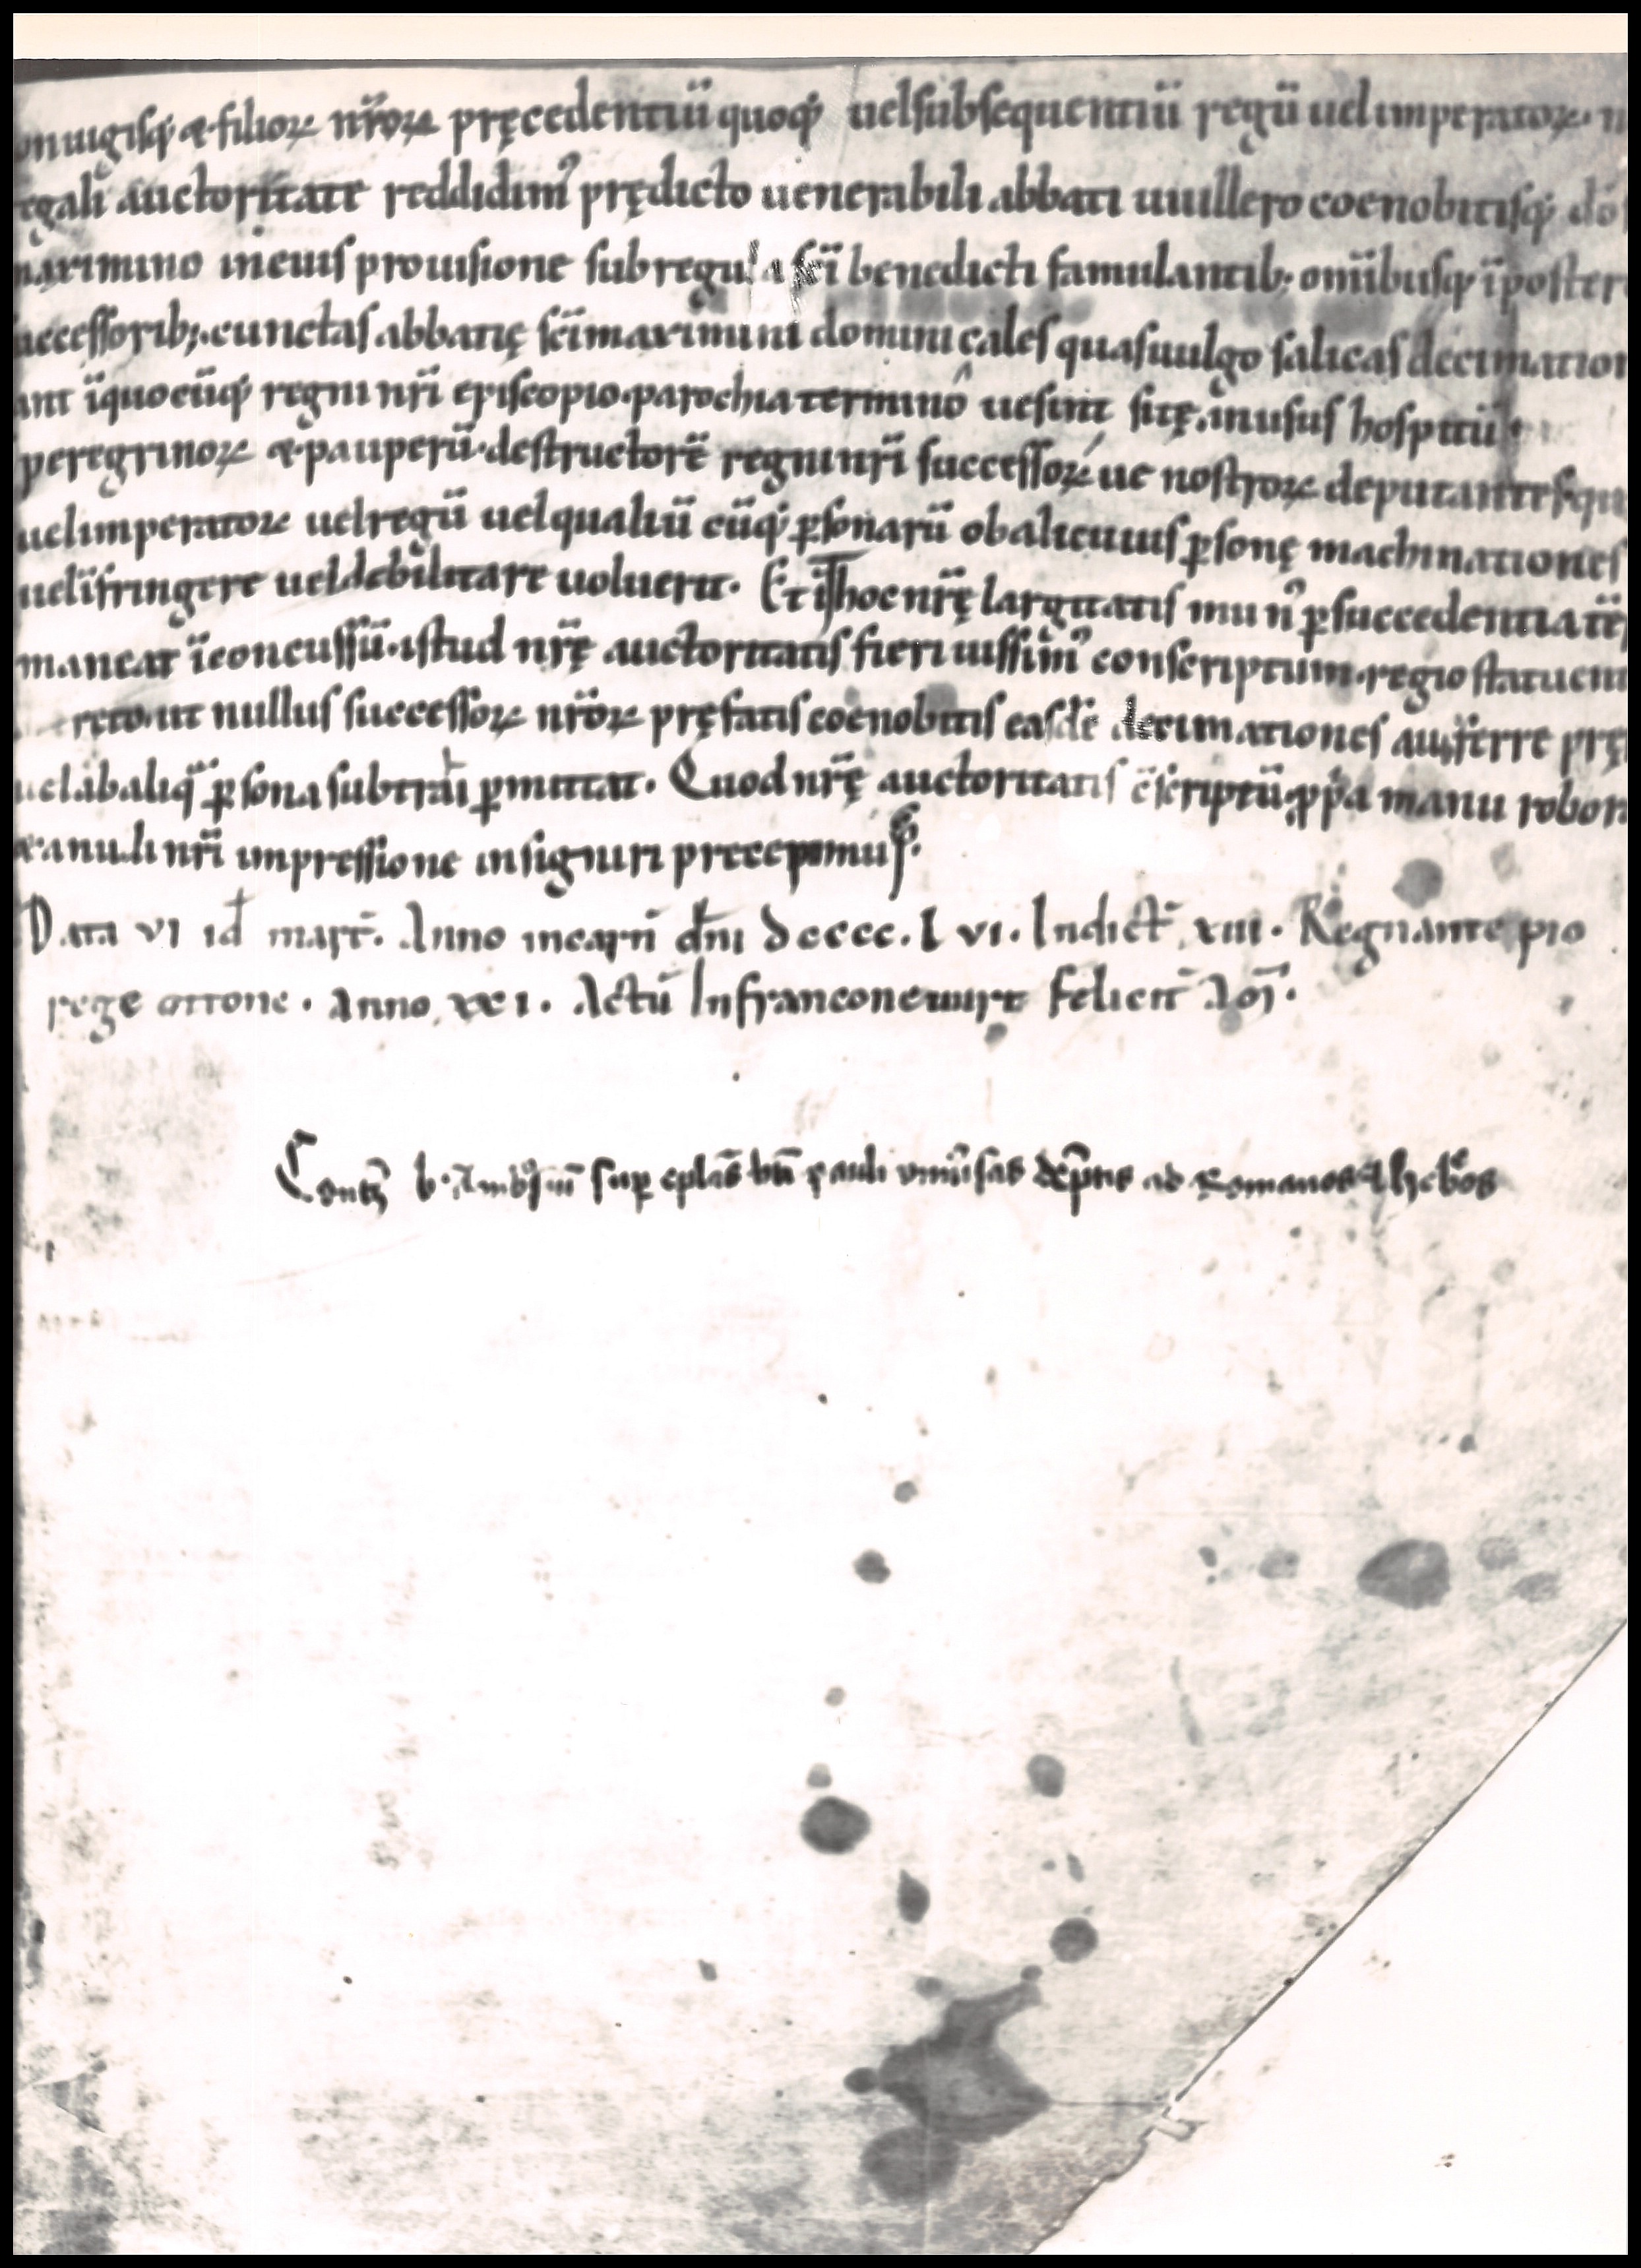 onuigisq; & filioꝝ nr̄oꝝ pręcedentiū quoq; uel subsequentiū regū uel imperatoꝝ.
egali auctoritate reddidim᾽ prędicto uenerabili abbati uuillero coenobitisq;
maximino in eius prouisione sub regula sc̄i benedicti famulantib; omībusq; ī poster
uccessorib;. cunctas abbatię sc̄i maximini dominicales quas uulgo salicas decimation
ant ī quocūq; regni nr̄i episcopio. parochia termino ue sint sitę. in usus hospitū
peregrinoꝝ & pauperū. destructorē regni nr̄i successoꝝ ue nostroꝝ deputantes. qu
uel imperatoꝝ uel regū uel qualiū cūq; ꝑsonarū ob alicuius ꝑsonę machinationes
uel īfringere uel debilitare uoluerit. Et hoc nr̄ę largitatis mun᾽ ꝑ succedentia tē
maneat īconcussū. istud nr̄ę auctoritatis fieri iussim᾽ conscriptum. regio statuent
reto. ut nullus successoꝝ nr̄oꝝ pręfatis coenobitis easdē decimationes auferre prę
uel ab aliq̄ ꝑsona subtrahi ꝑmittat. Quod nr̄ę auctoritatis c̄scriptū. ꝓpa manu robor
& anuli nr̄i impressione insigniri precepimus.
Data vi id mart̄. Anno incarn̄ dn̄i dcccc. l vi. Indict̄ xiii. Regnante pio
rege ottone. Anno xxi. Actū In franconeuurt felicit̄ am̄.
Contꝫ b. Ambrosiū suꝑ epl̄as bt̄i pauli vniūsas dēptis ad Romanos & hebreos